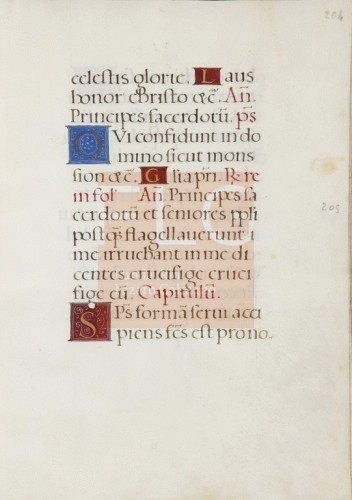 204
celestis glorie. Laus
honor Christo &c̃. Añ.
Principes sacerdotũ. ps̃
QVi confidunt in do
mino sicut mons
sion &c̃. Glia pr̃i. Re re
in fol' Añ. Principes sa
cerdotũ et seniores ppli
postq̃ flagellauerunt i
me irruebant in me di
centes crucifige cruci
fige eũ. Capitulũ.
SPs formã serui acci
piens fc̃s est prono.
205